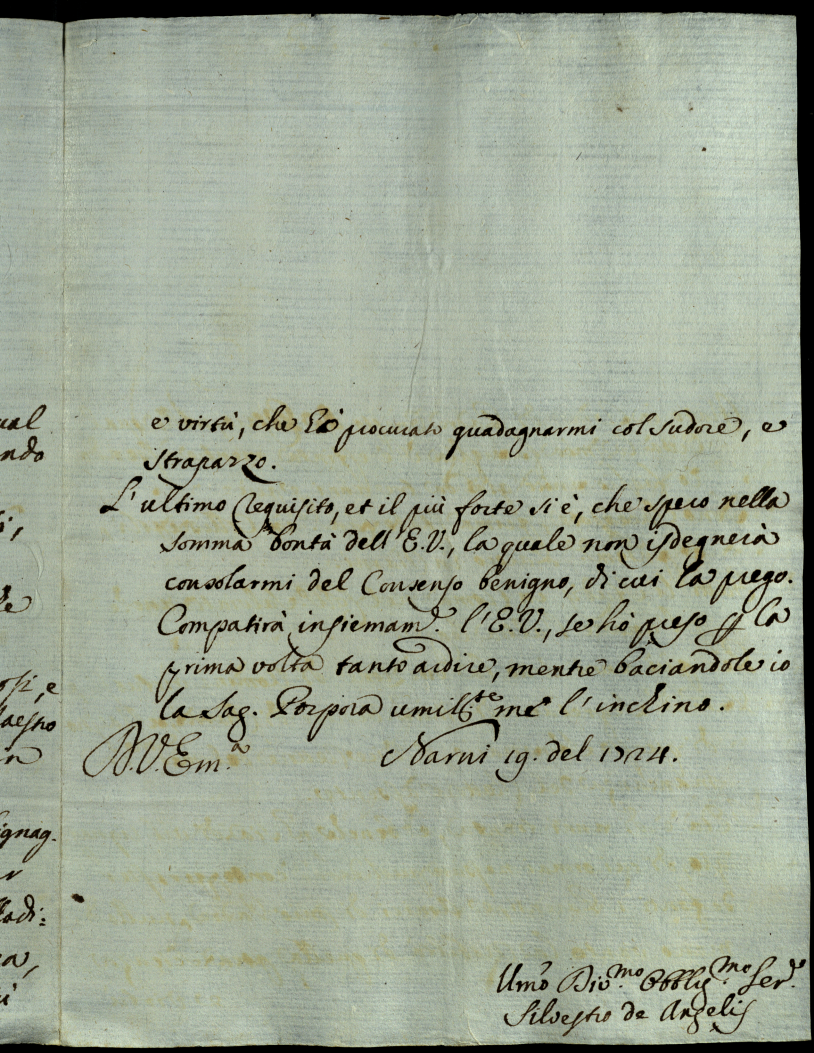 ual
ndo
e virtù, che hò procurato guadagnarmi col sudore, e
strapazzo.
L'ultimo requisito, et il più forte si è, che spero nella
somma bontà dell'E.V., la quale non isdegnerà
consolarmi del Consenso benigno, di cui la prego.
Compatirà insiemam.e l'E.V., se hò preso p la
prima volta tanto ardire, mentre baciandole io
la Sag. Porpora umiliss.te me l'inchino.
D.V.Em.a Narni 19. del 1724.
osi, e
aestro
ignag.
adi:
Umo Div.mo Obblig.mo Ser.e
Silvestro de Angelis